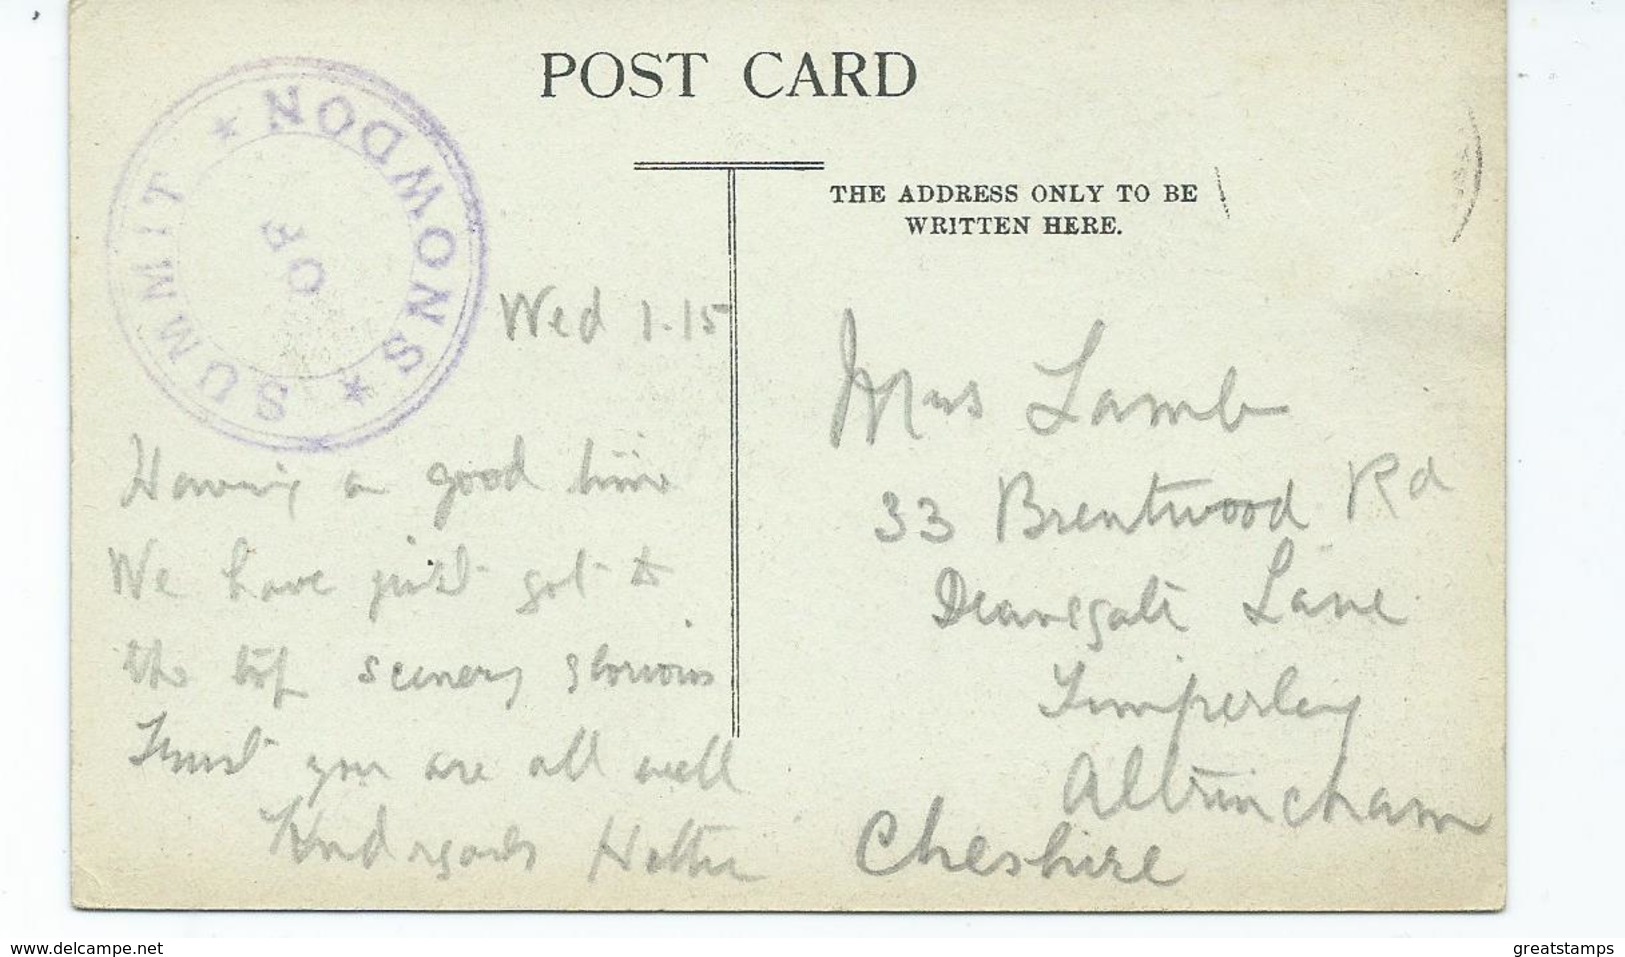 POST CARD
SUMMIT * OF * SNOWDON
THE ADDRESS ONLY TO BE
WRITTEN HERE.
Wed 1.15
Having a good time
We have just got to
the top scenery glorious
Trust you are all well
Kind regards
Mrs Lamb
33 Brentwood Rd
Deansgate Lane
Timperley
Altrincham
Cheshire
www.delcampe.net
greatstamps